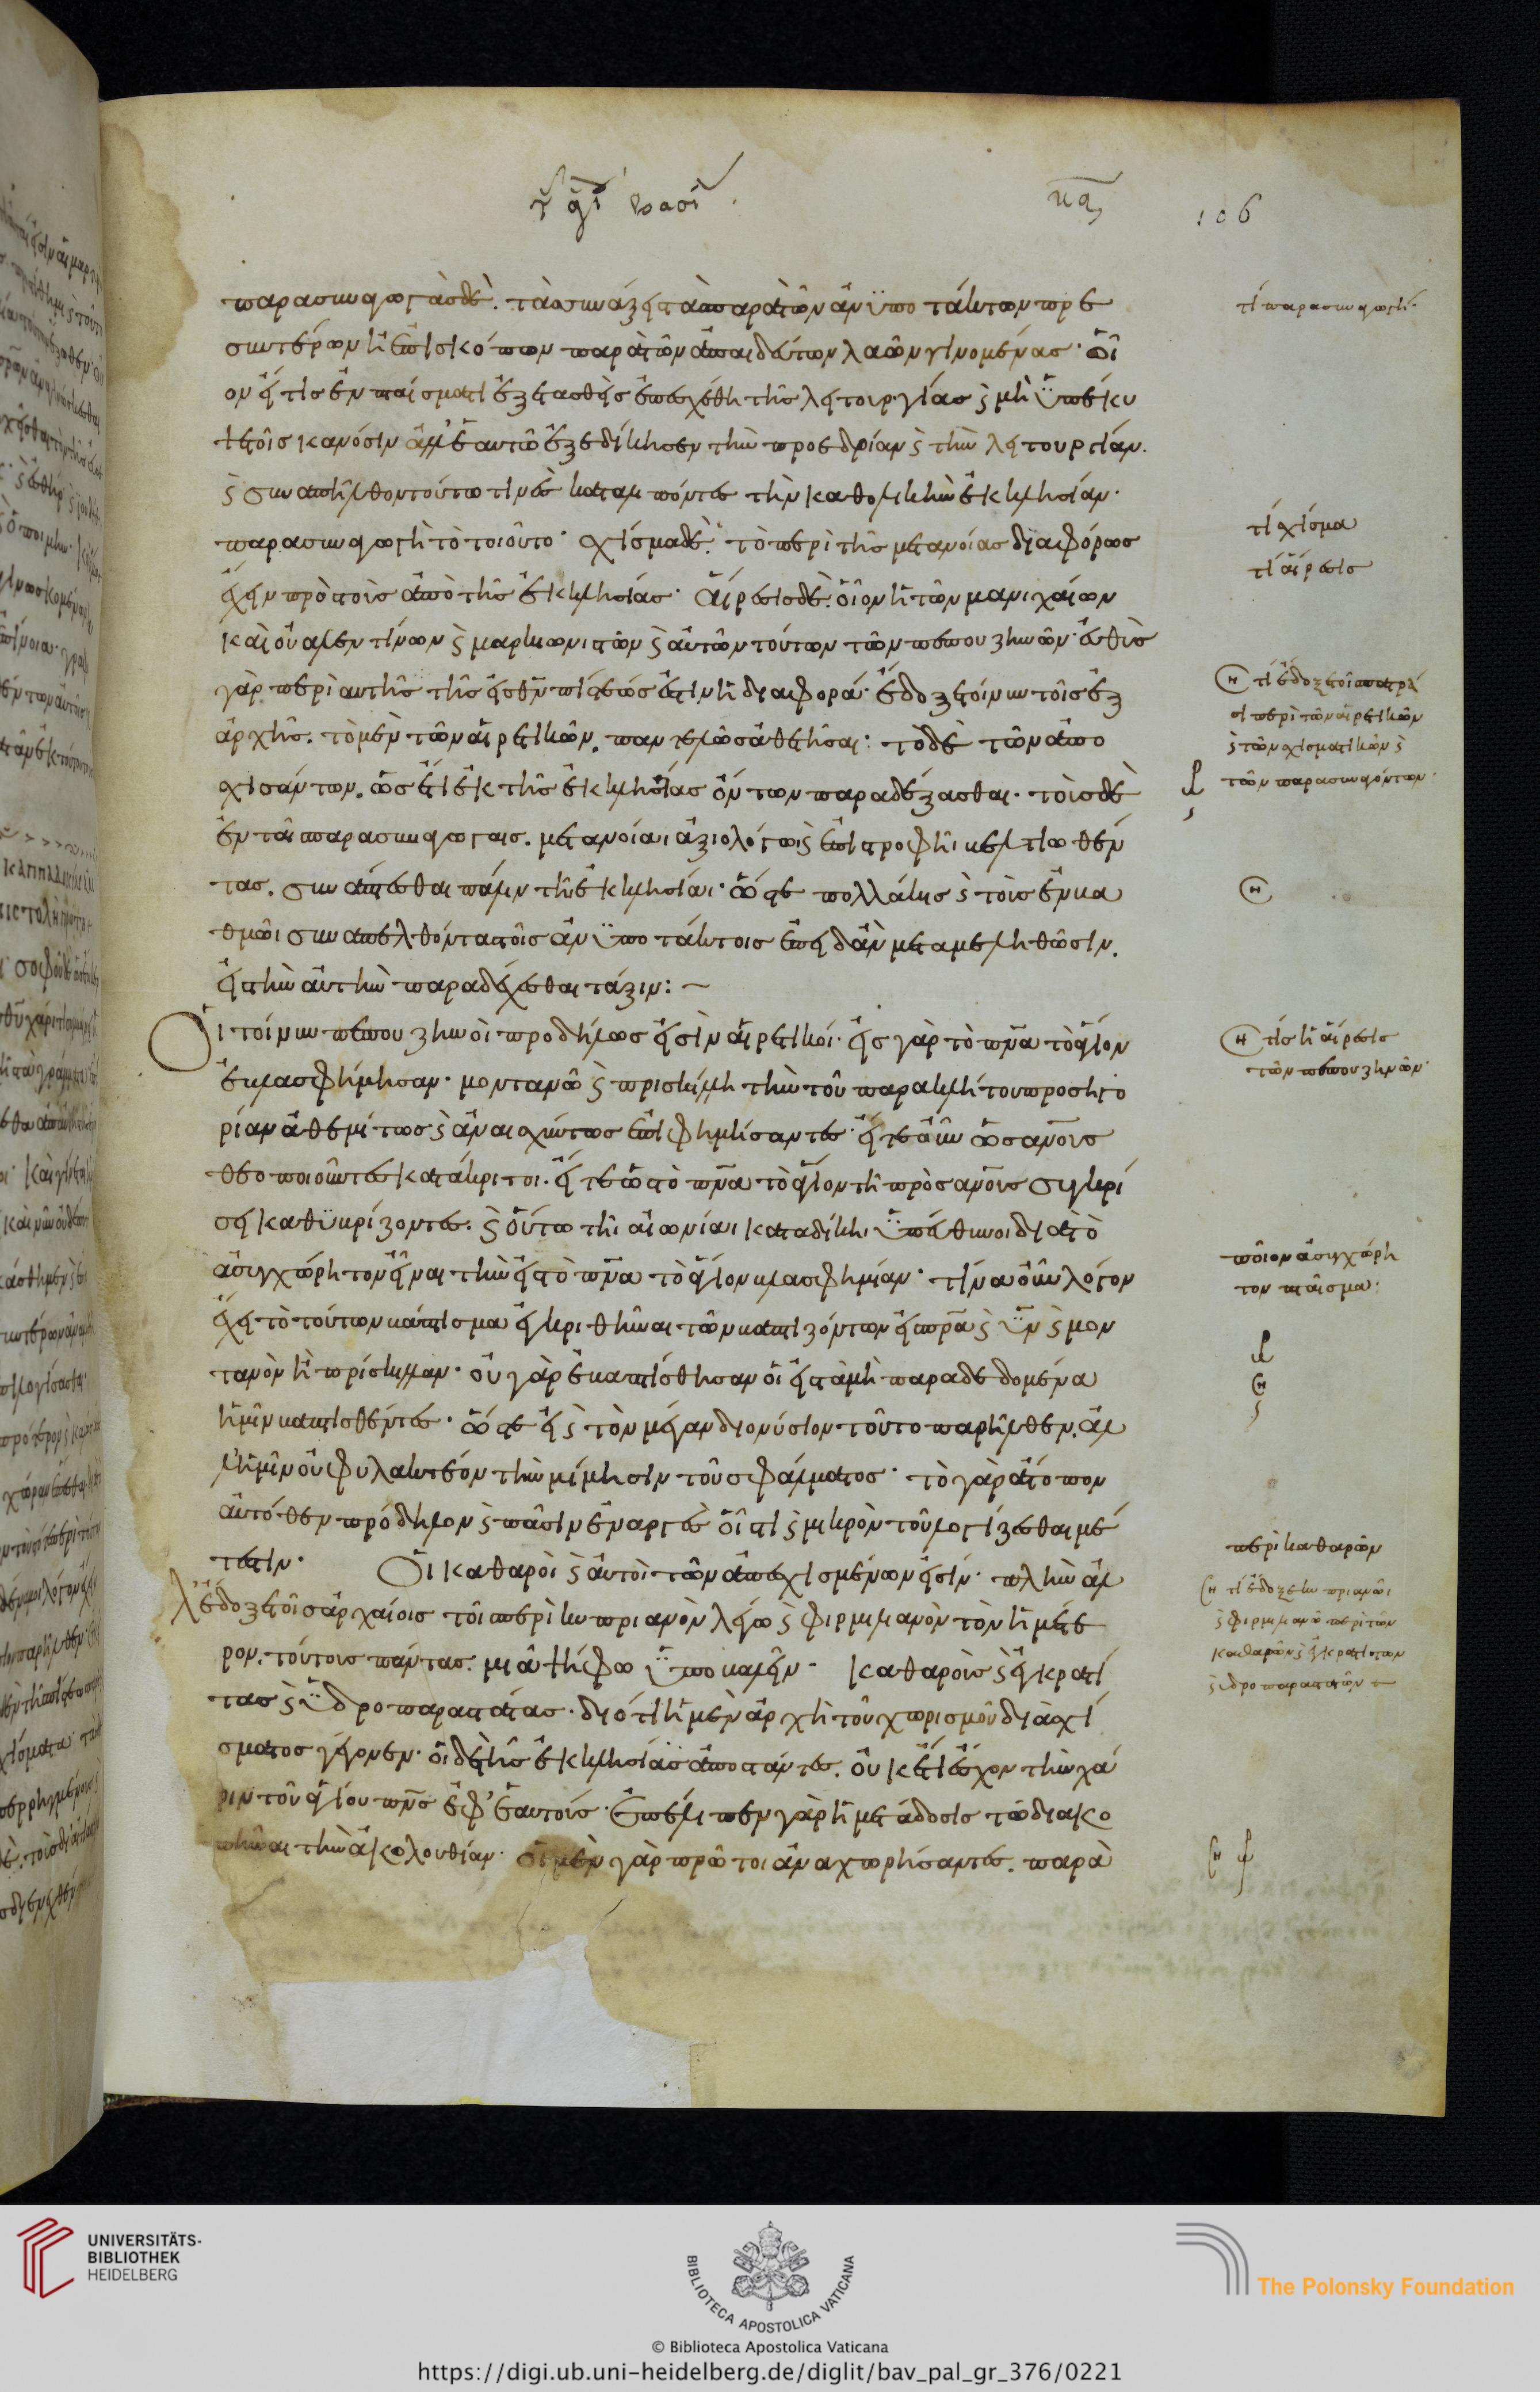 τοῦ ἁγί βασι
κα
106
παρασυναγωγὰς δὲ. τὰς συνάξεις τὰς παρὰ τῶν ἀνϋποτάκτων πρε
σβυτέρων ἢ ἐπισκόπων καὶ παρὰ τῶν ἀπαιδεύτων λαῶν γινομένας· οἷ
ον εἴ τις ἐν πταίσματι ἐξετασθεὶς ἐπεσχέθη τῆς λειτουργίας καὶ μὴ ϋπέκυ
ψε τοῖς κανόσιν ἀλλ' ἑαυτῶ ἐξεδίκησεν τὴν προεδρίαν καὶ τὴν λειτουργίαν.
καὶ συναπῆλθον τούτω τινὲς καταλιπόντες τὴν καθολικὴν ἐκκλησίαν·
παρασυναγωγὴ τὸ τοιοῦτο· σχίσμα δὲ. τὸ περὶ τῆς μετανοίας διαφόρως
ἔχειν πρὸς τοὺς ἀπὸ τῆς ἐκκλησίας· αἵρεσις δὲ. οἷον ἡ τῶν μανιχαίων
καὶ οὐαλεντίνων καὶ μαρκιωνιστῶν καὶ αὐτῶν τούτων τῶν πεπουζηνῶν· εὐθὺς
γὰρ περὶ αὐτῆς τῆς εἰς θν πίστεώς ἐστιν ἡ διαφορά· ἔδοξε τοίνυν τοῖς ἐξ
ἀρχῆς. τὸ μὲν τῶν αἱρετικῶν. παντελῶς ἀθετῆσαι· τὸ δὲ τῶν ἀπο
σχισάντων. ὡς ἔτι ἐκ τῆς ἐκκλησίας ὄντων παραδέξασθαι· τοὺς δὲ
ἐν ταῖς παρασυναγωγαῖς. μετανοίαι ἀξιολόγωι καὶ ἐπιστροφῆι βελτιωθέν
τας. συνάπτεσθαι πάλιν τῆι ἐκκλησίαι· ὥστε πολλάκις καὶ τοὺς ἐν βα
θμῶι συναπελθόντας τοῖς ἀνϋποτάκτοις ἐπειδὰν μεταμεληθῶσιν.
εἰς τὴν αὐτὴν παραδέχεσθαι τάξιν: ~
Οἱ τοίνυν πεπουζηνοὶ προδήλως εἰσὶν αἱρετικοί· εἰς γὰρ τὸ πνα τὸ ἅγιον
ἐβλασφήμησαν· μοντανῶ καὶ πρισκίλλη τὴν τοῦ παρακλήτου προσηγο
ρίαν ἀθεμίτως καὶ ἀναισχύντως ἐπιφημίσαντες· εἴτε οὖν ὡς ανους
θεοποιοῦντες κατάκριτοι. εἴτε ὡς τὸ πνα τὸ ἅγιον τῆ πρὸς ανους συγκρί
σει καθϋβρίζοντες. καὶ οὕτω τῆι αἰωνίαι καταδίκηι ϋπεύθυνοι διὰ τὸ
ἀσυγχώρητον εἶναι τὴν εἰς τὸ πνα τὸ ἅγιον βλασφημίαν· τίνα οὖν λόγον
ἔχει τὸ τούτων βάπτισμα ἐγκριθῆναι τῶν βαπτιζόντων εἰς πρα καὶ ϋν καὶ μον
τανὸν ἢ πρίσκιλλαν· οὐ γὰρ ἐβαπτίσθησαν οἱ εἰς τὰ μὴ παραδεδομένα
ἡμῖν βαπτισθέντες· ὥστε εἰ καὶ τὸν μέγαν διονύσιον τοῦτο παρῆλθεν. ἀλ
λ' ἡμῖν οὐ φυλακτέον τὴν μίμησιν τοῦ σφάλματος· τὸ γὰρ ἄτοπον
αὐτόθεν πρόδηλον καὶ πᾶσιν ἐναργὲς οἷς τι καὶ μικρὸν τοῦ λογίζεσθαι μέ
τεστιν· Οἱ καθαροὶ καὶ αὐτοὶ τῶν ἀπεσχισμένων εἰσίν· πλὴν ἀλ
λ' ἔδοξε τοῖς ἀρχαίοις τοῖς περὶ κυπριανὸν λέγω καὶ φιρμιλιανὸν τὸν ἡμέτε
ρον. τούτους πάντας. μιᾶ ψήφω ϋποβαλεῖν· καθαροὺς καὶ ἐγκρατί
τας καὶ ϋδροπαραστάτας· διότι ἡ μὲν ἀρχὴ τοῦ χωρισμοῦ διὰ σχί
σματος γέγονεν· οἱ δὲ τῆς ἐκκλησίας ἀποστάντες. οὐκέτι ἔσχον τὴν χά
ριν τοῦ ἁγίου πνς ἐφ' ἑαυτούς· ἐπέλιπεν γὰρ ἡ μετάδοσις τῶ διακο
πῆναι τὴν ἀκολουθίαν· οἱ μὲν γὰρ πρῶτοι ἀναχωρήσαντες. παρὰ
τί παρασυναγωγή·
τί σχίσμα
τί αἵρεσις
τί ἔδοξε τοῖς πατρά
σι περὶ τῶν αἱρετικῶν
καὶ τῶν σχισματικῶν καὶ
τῶν παρασυναγόντων·
τίς ἡ αἵρεσις
τῶν πεπουζηνῶν·
ποῖον ἀσυγχώρη
τον πταῖσμα·
περὶ καθαρῶν
τί ἔδοξε κυπριανῶι
καὶ φιρμιλιανῶ περὶ τῶν
καθαρῶν καὶ ἐγκρατιτῶν
καὶ ϋδροπαραστατῶν
UNIVERSITÄTS-
BIBLIOTHEK
HEIDELBERG
BIBLIOTECA APOSTOLICA VATICANA
The Polonsky Foundation
© Biblioteca Apostolica Vaticana
https://digi.ub.uni-heidelberg.de/diglit/bav_pal_gr_376/0221